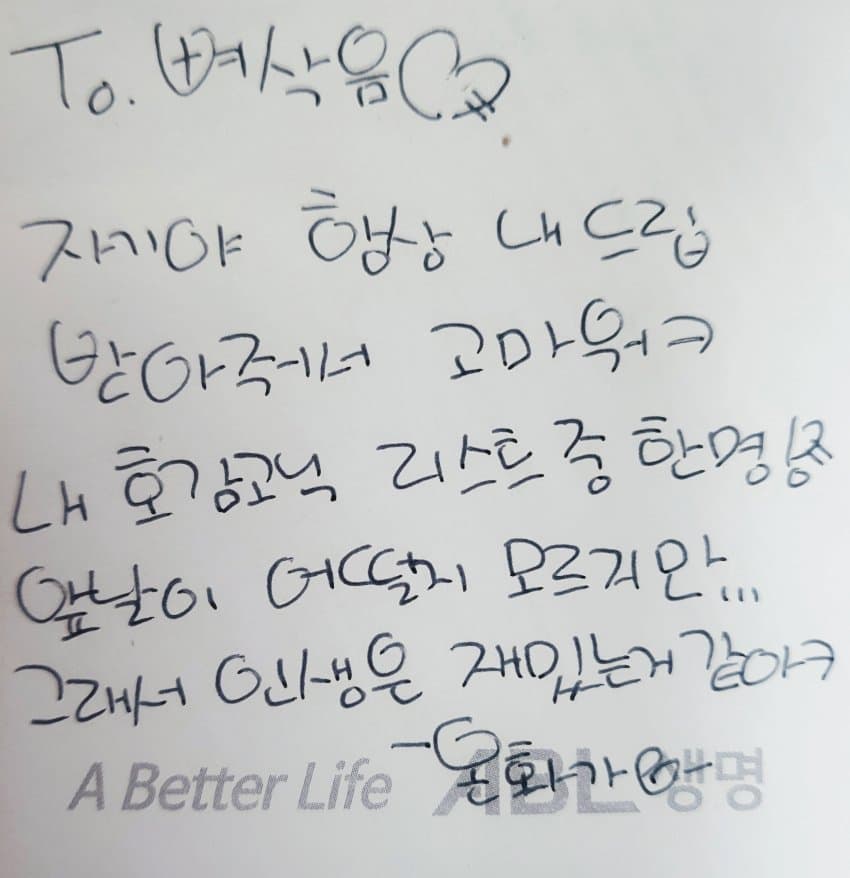 To. 벽삭음
자기야 항상 내 드립
받아줘서 고마워ㅋ
내 호감고닉 리스트 중 한명
앞날이 어떨지 모르지만...
그래서 인생은 재밌는거 같아ㅋ
-은화가
A Better Life ABL생명